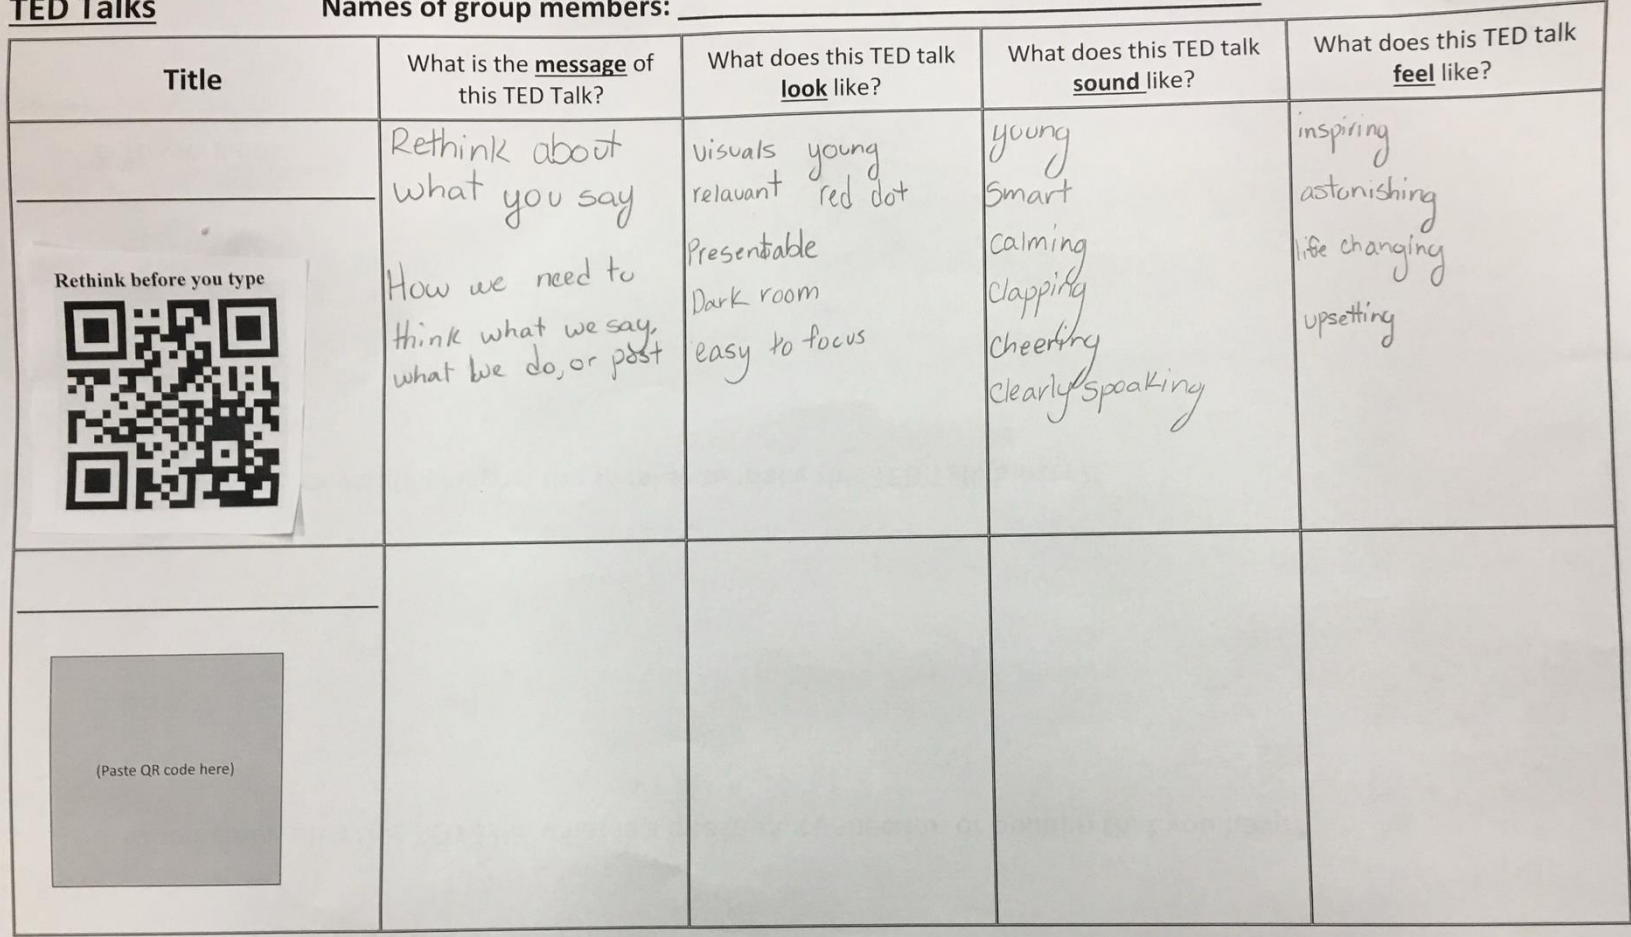 TED Talks Names of group members:
Title
What is the message of
this TED Talk?
What does this TED talk
look like?
What does this TED talk
sound like?
What does this TED talk
feel like?
Rethink before you type
Rethink about
what you say
How we need to
think what we say,
what we do, or post
visuals young
relavant red dot
Presentable
Dark room
easy to focus
young
Smart
Calming
Clapping
Cheering
Clearly spoaking
inspiring
astonishing
life changing
upsetting
(Paste QR code here)